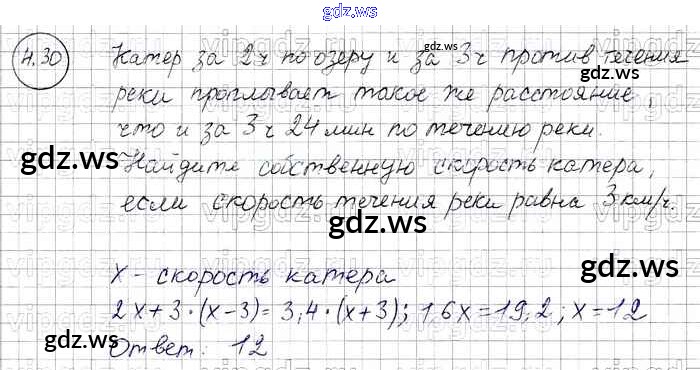 gdz.ws
4.30 Катер за 2ч по озеру и за 3ч против течения
gdz.ws
реки проплывает такое же расстояние,
что и за 3ч 24 мин по течению реки.
gdz.ws gdz.ws
Найдите собственную скорость катера,
если скорость течения реки равна 3км/ч.
gdz.ws
x - скорость катера
gdz.ws
2x+3·(x-3)=3,4·(x+3); 1,6x=19,2; x=12
gdz.ws
Ответ: 12
gdz.ws